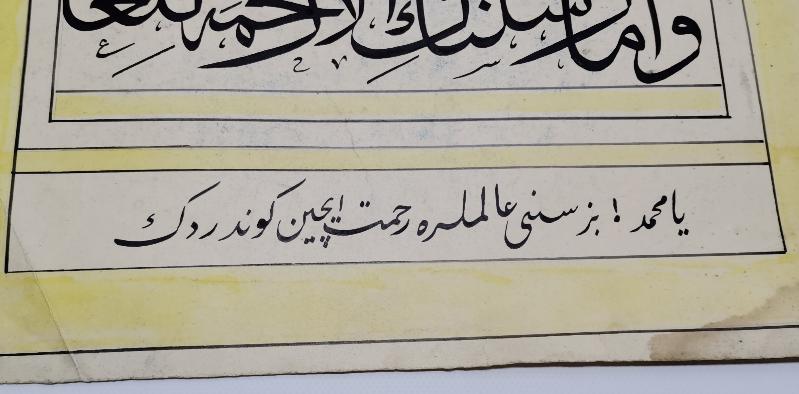 وما أرسلناك إلا رحمة للعا
يا محمد ! بز سنى عالملره رحمت ايچين كوندردك